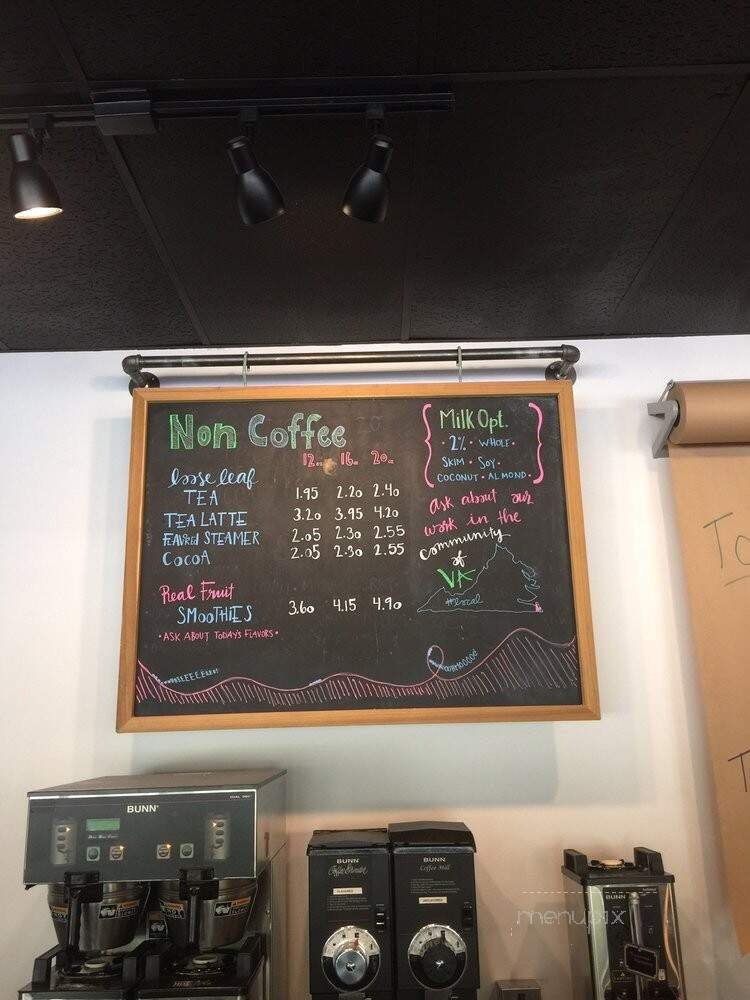 Non Coffee
12oz 16oz 20oz
loose leaf
TEA 1.95 2.20 2.40
TEA LATTE 3.20 3.95 4.20
FLAVRED STEAMER 2.05 2.30 2.55
COCOA 2.05 2.30 2.55
Real Fruit
SMOOTHIES 3.60 4.15 4.90
• ASK ABOUT TODAY'S FLAVORS •
Milk Opt.
• 2% • WHOLE •
SKIM • SOY •
COCONUT • ALMOND •
ask about our
work in the
community
of
VA
#local
BUNN
BUNN
Coffee Mill
BUNN
Coffee Mill
BUNN
menupix